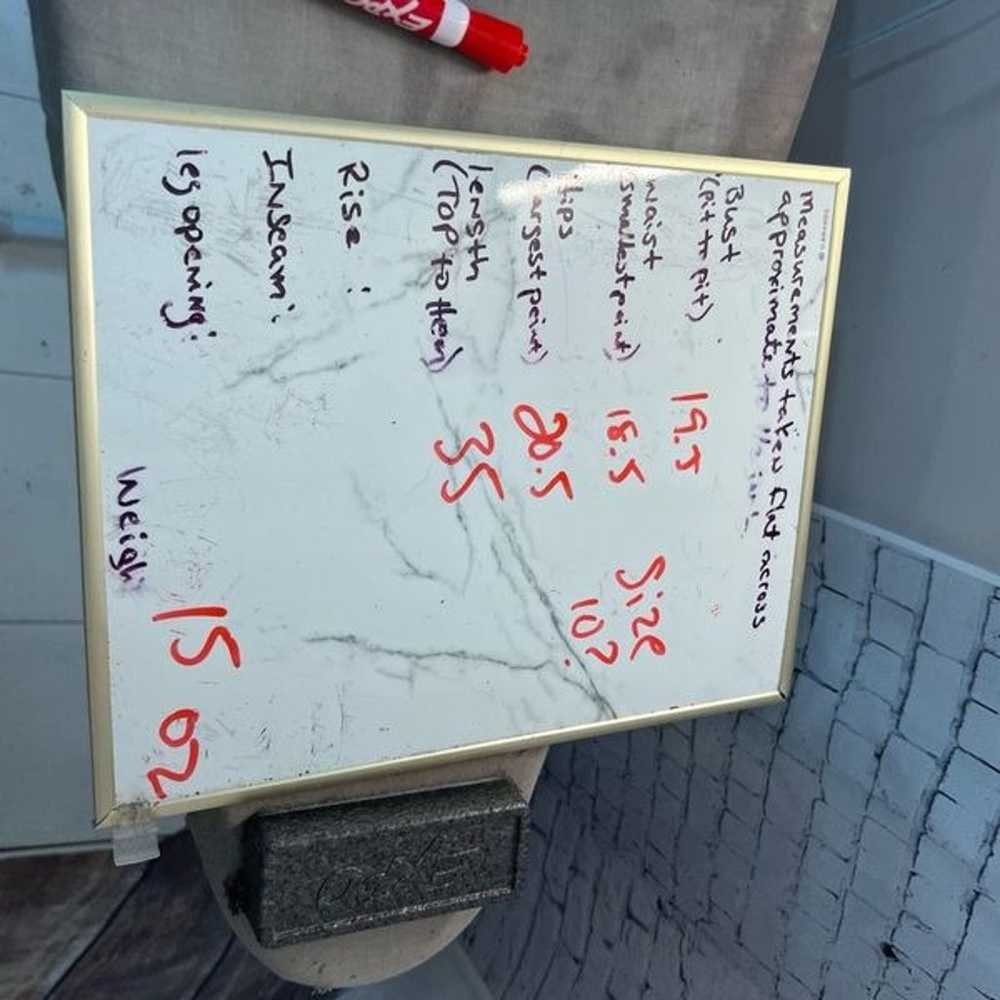 Measurements taken flat across
approximate to
Bust
(pit to pit) 19.5
waist
(smallest point) 18.5
Hips
(Largest point) 20.5
length
(Top to Hem) 35
Size
10?
Rise:
Inseam:
leg opening:
Weigh
15 oz
EXPO
EXPO